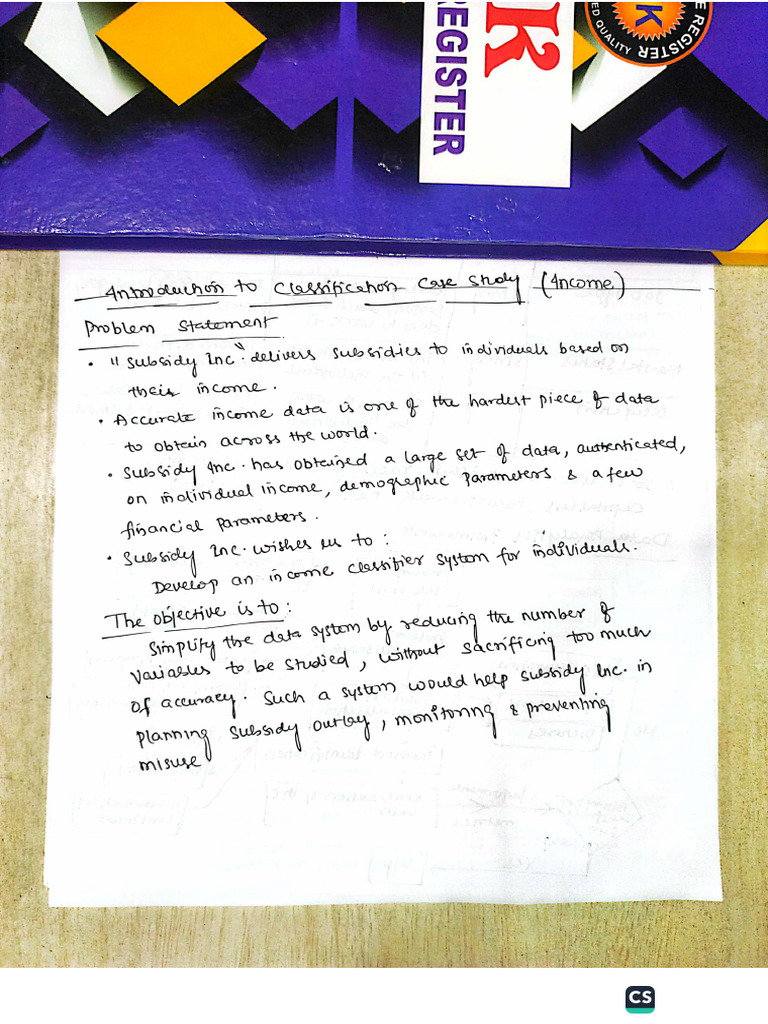 K
REGISTER
K
E REGISTER
ED QUALITY
REGISTER
Introduction to Classification Case Study (Income)
Problem Statement
• "Subsidy Inc" delivers subsidies to individuals based on
their income.
• Accurate income data is one of the hardest piece of data
to obtain across the world.
• Subsidy Inc. has obtained a large set of data, authenticated,
on individual income, demographic parameters & a few
financial parameters.
• Subsidy Inc. wishes us to :
Develop an income classifier system for individuals.
The objective is to :
Simplify the data system by reducing the number of
variables to be studied, without sacrificing too much
of accuracy. Such a system would help subsidy Inc. in
planning subsidy outlay, monitoring & preventing
misuse
CS